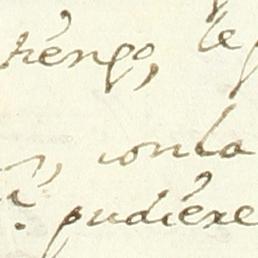 tiéngo, le
, con la
pudiére